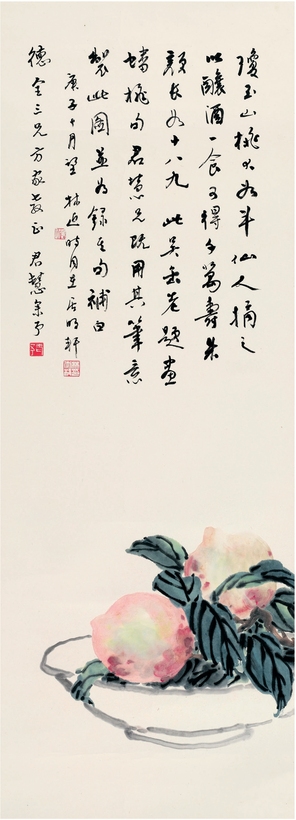 瓊玉山桃大如斗仙人摘之
以釀酒一食可得千萬壽朱
顏長如十八九此吳缶老題畫
蟠桃句君慧兄既用其筆意
製此圖並為錄其句補白
庚子十月望林近時同在居明軒
德全三兄方家教正 君慧